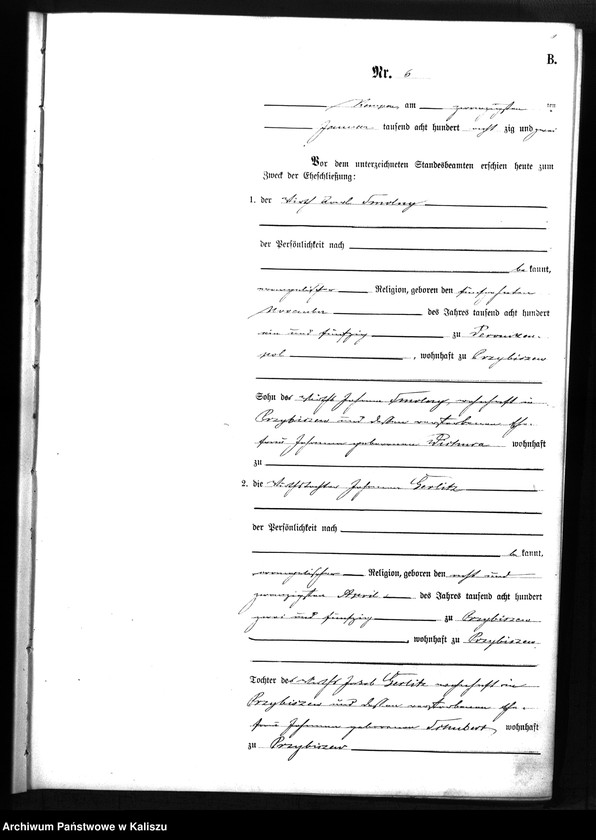 B.
Nr. 6
Kempen am zwanzigsten ten
Januar tausend acht hundert acht zig und zwei
Vor dem unterzeichneten Standesbeamten erschien heute zum
Zweck der Eheschließung:
1. der Wirth Smolny
der Persönlichkeit nach
be kannt,
evangelischer Religion, geboren den fünfzehnten
November des Jahres tausend acht hundert
ein und fünfzig zu
, wohnhaft zu Przybiszew
Sohn des Wirths Johann Smolny, wohnhaft in
Przybiszew und dessen verstorbenen Ehe-
frau Johanna geborenen wohnhaft
zu
2. die Wirthstochter Johanna Gerlitz
der Persönlichkeit nach
be kannt,
evangelischer Religion, geboren den acht und
zwanzigsten April des Jahres tausend acht hundert
zwei und fünfzig zu Przybiszew
, wohnhaft zu Przybiszew
Tochter des Wirths Jakob Gerlitz wohnhaft in
Przybiszew und dessen verstorbenen Ehe-
frau Johanna geborenen Schubert, wohnhaft
zu Przybiszew
Archiwum Państwowe w Kaliszu